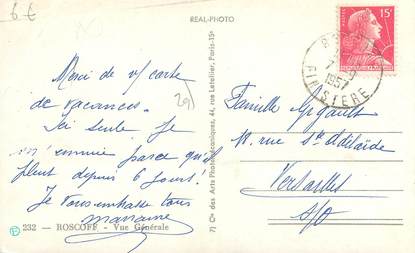 6 €
REAL-PHOTO
Merci de v/ carte
de vacances.
Ici seule je
m'ennuie parce qu'il
pleut depuis 6 jours!
Je vous embrasse tous
marraine
232 - ROSCOFF - Vue Générale
Cie des Arts Photomécaniques, 44, rue Letellier, Paris-15e
POSTES
15F
1957
FINISTERE
Famille
18, rue Ste Adélaïde
Versailles
S/O